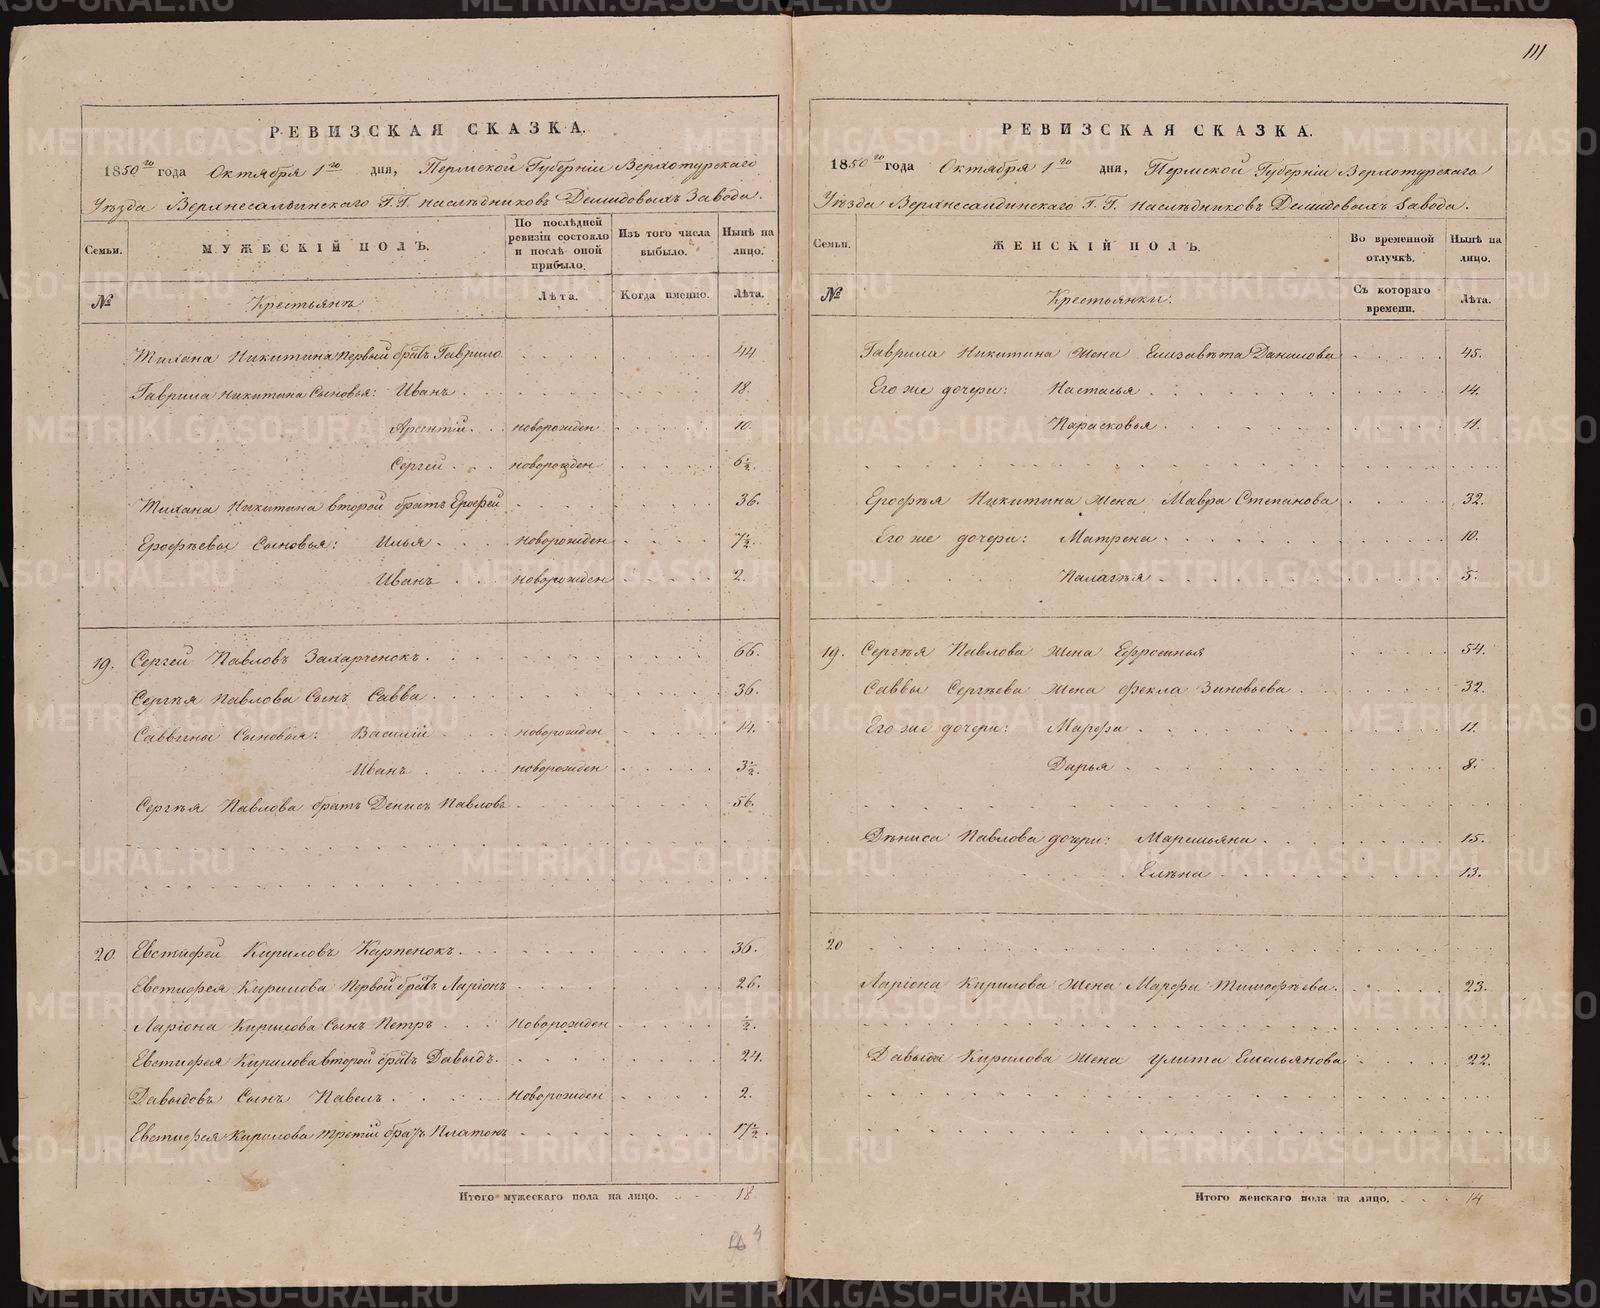 111
РЕВИЗСКАЯ СКАЗКА.
1850го года Октября 1го дня, Пермской Губерніи Верхотурскаго
Уѣзда Верхнесалдинскаго Г.Г. наслѣдниковъ Демидовыхъ Завода.
Семьи.
МУЖЕСКІЙ ПОЛЪ.
По послѣдней ревизіи состояло и послѣ оной прибыло.
Изъ того числа выбыло.
Нынѣ на лицо.
№
Крестьянъ
Лѣта.
Когда именно.
Лѣта.
Тихана Никитина первый братъ Гаврило 44
Гаврила Никитина Сыновья: Иванъ 18.
Арсентій новорожден 10.
Сергей новорожден 6½.
Тихана Никитина второй братъ Ерофей 36.
Ерофѣевы Сыновья: Илья новорожден 7½.
Иванъ новорожден 2.
19. Сергей Павловъ Захарченокъ. 66.
Сергѣя Павлова Сынъ Савва 36.
Саввины Сыновья: Василій новорожден 14.
Иванъ новорожден 3½.
Сергѣя Павлова братъ Денисъ Павловъ 56.
20. Евстифей Кириловъ Карпенокъ. 36.
Евстифея Кирилова Первой братъ Ларіонъ 26.
Ларіона Кирилова Сынъ Петръ Новорожден ½.
Евстифея Кирилова второй братъ Давыдъ. 24.
Давыдовъ Сынъ Павелъ. Новорожден 2.
Евстифея Кирилова третій братъ Платонъ 17½.
Итого мужескаго пола на лицо. 18
РЕВИЗСКАЯ СКАЗКА.
1850го года Октября 1го дня, Пермской Губерніи Верхотурскаго
Уѣзда Верхнесалдинскаго Г.Г. наслѣдниковъ Демидовыхъ Завода.
Семьи.
ЖЕНСКІЙ ПОЛЪ.
Во временной отлучкѣ.
Нынѣ на лицо.
№
Крестьянки.
Съ котораго времени.
Лѣта.
Гаврила Никитина жена Елизавѣта Данилова 45.
Его же дочери: Настасья 14.
Парасковья 11.
Ерофѣя Никитина жена Мавра Степанова 32.
Его же дочери: Матрена 10.
Палагѣя 5.
19. Сергѣя Павлова жена Ефросинья 54.
Саввы Сергѣева жена Фекла Зиновьева 32.
Его же дочери: Марфа 11.
Дарья 8.
Дѣниса Павлова дочери: Маремьяна 15.
Елѣна 13.
20
Ларіона Кирилова жена Марфа Тимофѣева. 23.
Давыда Кирилова жена Улита Емельянова 22.
Итого женскаго пола на лицо. 14
METRIKI.GASO-URAL.RU